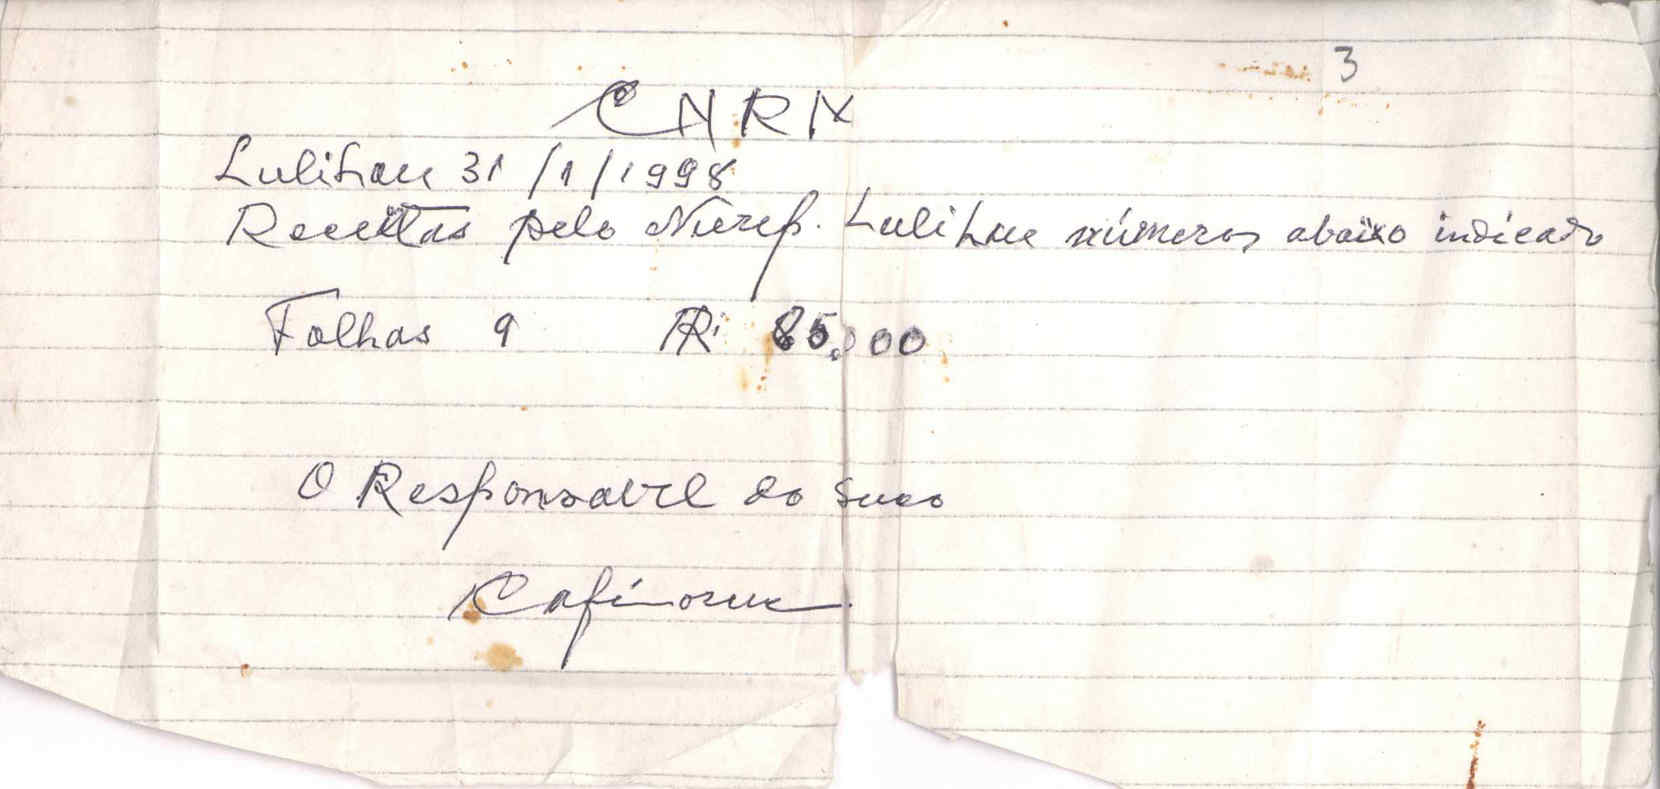 3
CNRM
Lulihau 31/1/1998
Receitas pelo Nurep. Lulihau números abaixo indicado
Folhas 9 Rp: 85.000
O Responsavel do Suco